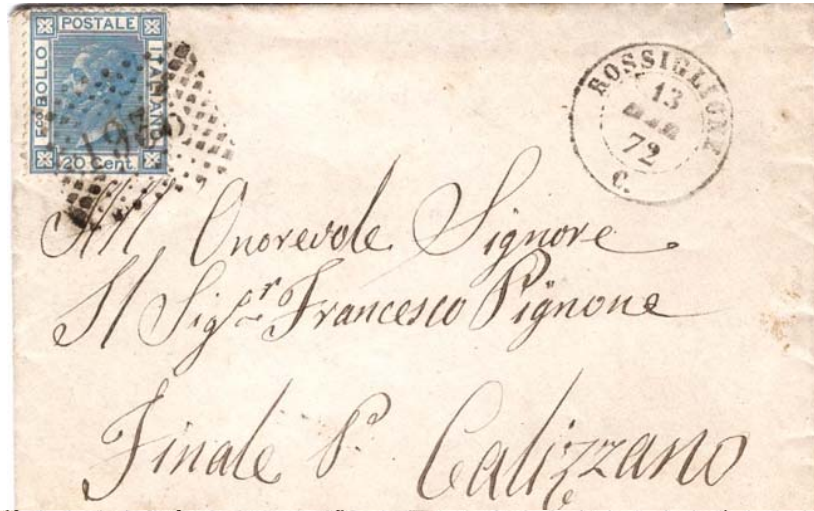 POSTALE
Fco BOLLO
ITALIANO
20 Cent
ROSSIGLIONE
13
72
C.
All' Onorevole Signore
Il Sigr Francesco Pignone
Finale Pa Calizzano